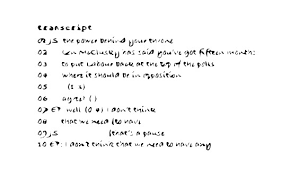 transcript
01 JS the power behind your throne
02 Len McCluskey has said you've got fifteen months
03 to put Labour back at the top of the polls
04 where it should be in opposition
05
06 agree? ( )
07 EP well (0.4) I don't think
08 that we need (to have
09 JS (that's a pause
10 EP I don't think that we need to have any